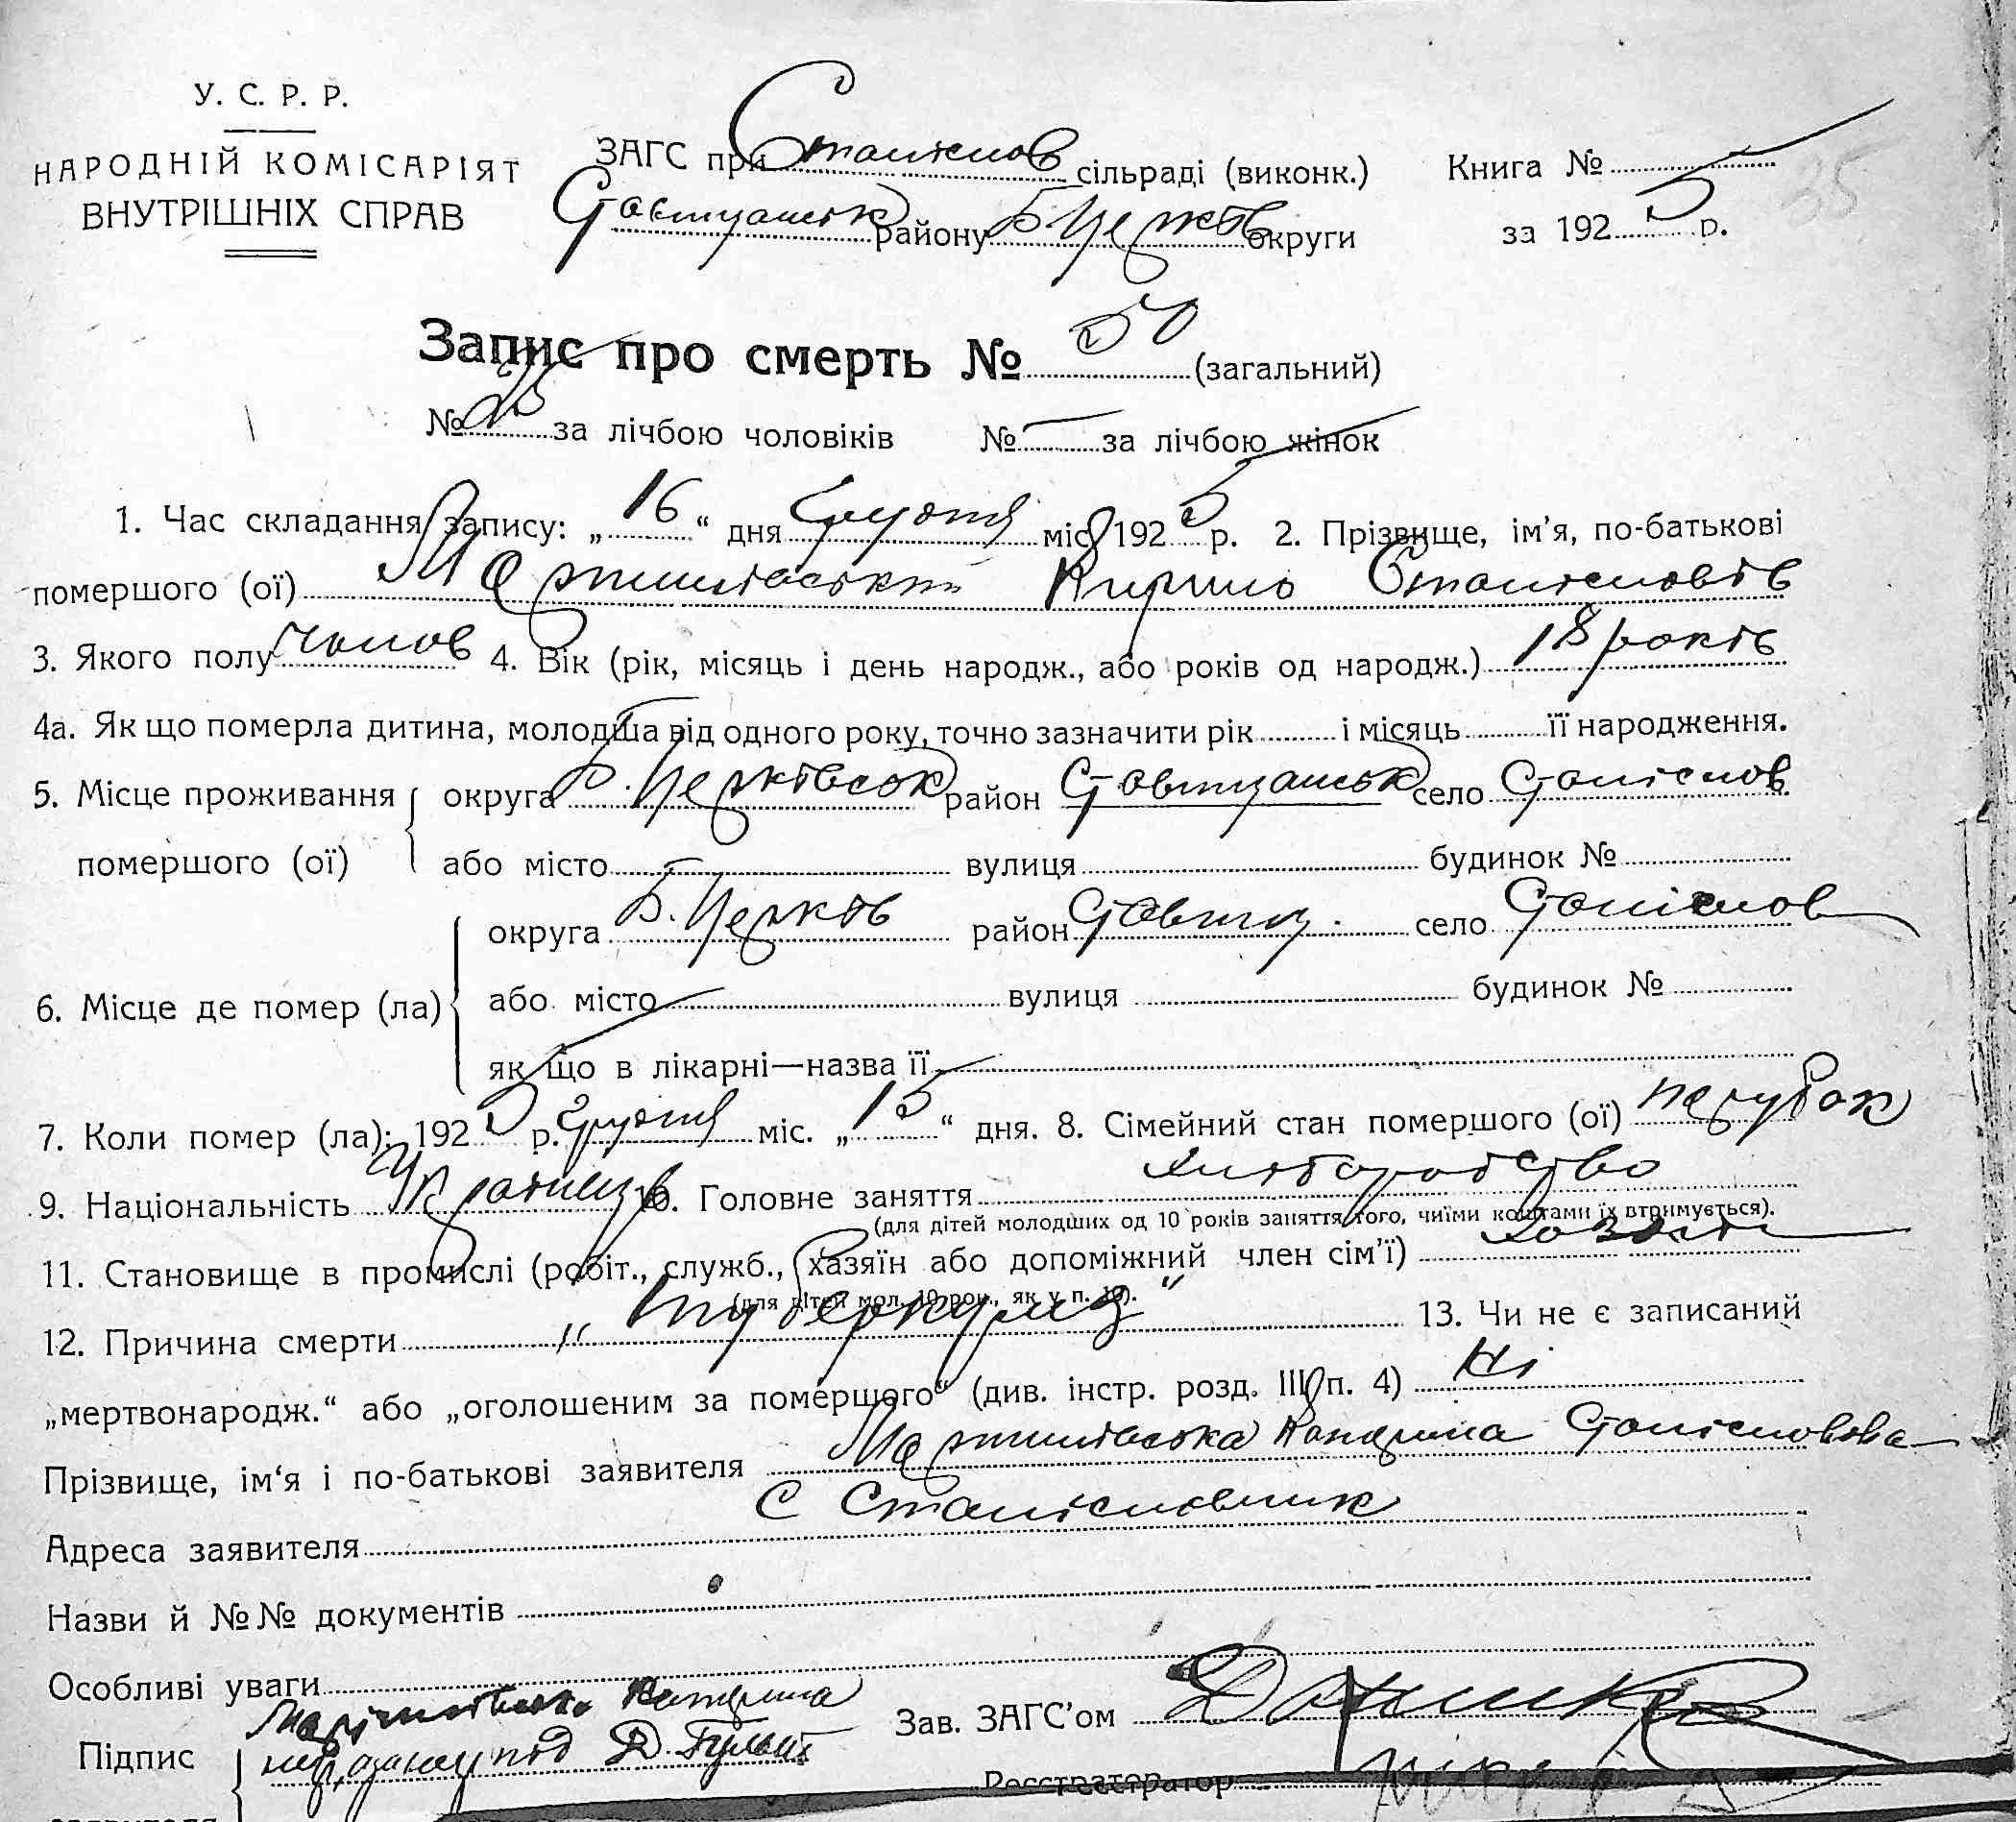 У. С. Р. Р.
НАРОДНІЙ КОМІСАРІЯТ
ВНУТРІШНІХ СПРАВ
ЗАГС при Станіслов сільраді (виконк.)
Ставищанськ району Б Церків округи
Книга №
за 1925 р.
35
Запис про смерть № 50 (загальний)
№ 25 за лічбою чоловіків № за лічбою жінок
1. Час складання запису: „16“ дня Грудня міс 1925 р. 2. Прізвище, ім’я, по-батькові
помершого (ої) Кирило Станіславів
3. Якого полу Чолов 4. Вік (рік, місяць і день народж., або років од народж.) 18 років
4а. Як що померла дитина, молодша від одного року, точно зазначити рік і місяць її народження.
5. Місце проживання помершого (ої) округа Б. Церківськ район Ставищанськ село Станіслов
або місто вулиця будинок №
6. Місце де помер (ла) округа Б. Церків район Ставищ. село Станіслов
або місто вулиця будинок №
як що в лікарні—назва її
7. Коли помер (ла): 1925 р. Грудня міс. „15“ дня. 8. Сімейний стан помершого (ої) парубок
9. Національність Українец 10. Головне заняття хліборобство
(для дітей молодших од 10 років заняття того, чиїми коштами їх втримується).
11. Становище в промислі (робіт., служб., хазяїн або допоміжний член сім’ї) хозяїн
(для дітей мол. 10 рок., як у п. 10).
12. Причина смерти „туберкульоз“ 13. Чи не є записаний
„мертвонародж.“ або „оголошеним за помершого“ (див. інстр. розд. III п. 4) Ні
Прізвище, ім‘я і по-батькові заявителя Станіславова
Адреса заявителя С Станіславчик
Назви й №№ документів
Особливі уваги
Підпис заявителя
Зав. ЗАГС’ом
Реєстратор